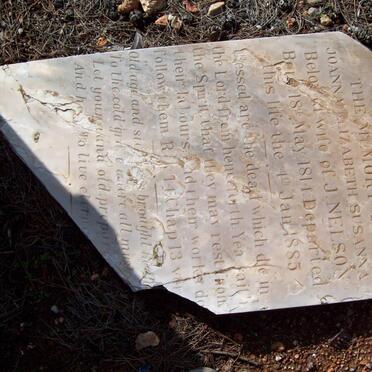 THE MEMORY
JOANNA ELIZABETH SUSANNA
Beloved wife of J NELSON
Born 18 May 1814 Departed
this life the 4th Jan 1885
Blessed are the dead which die in
the Lord from henceforth Yea
the Spirit that they may rest from
their labours and their works do
follow them Rev Chap 13 v
Old age and brought
To the cold grave
young and old prepare
And to live